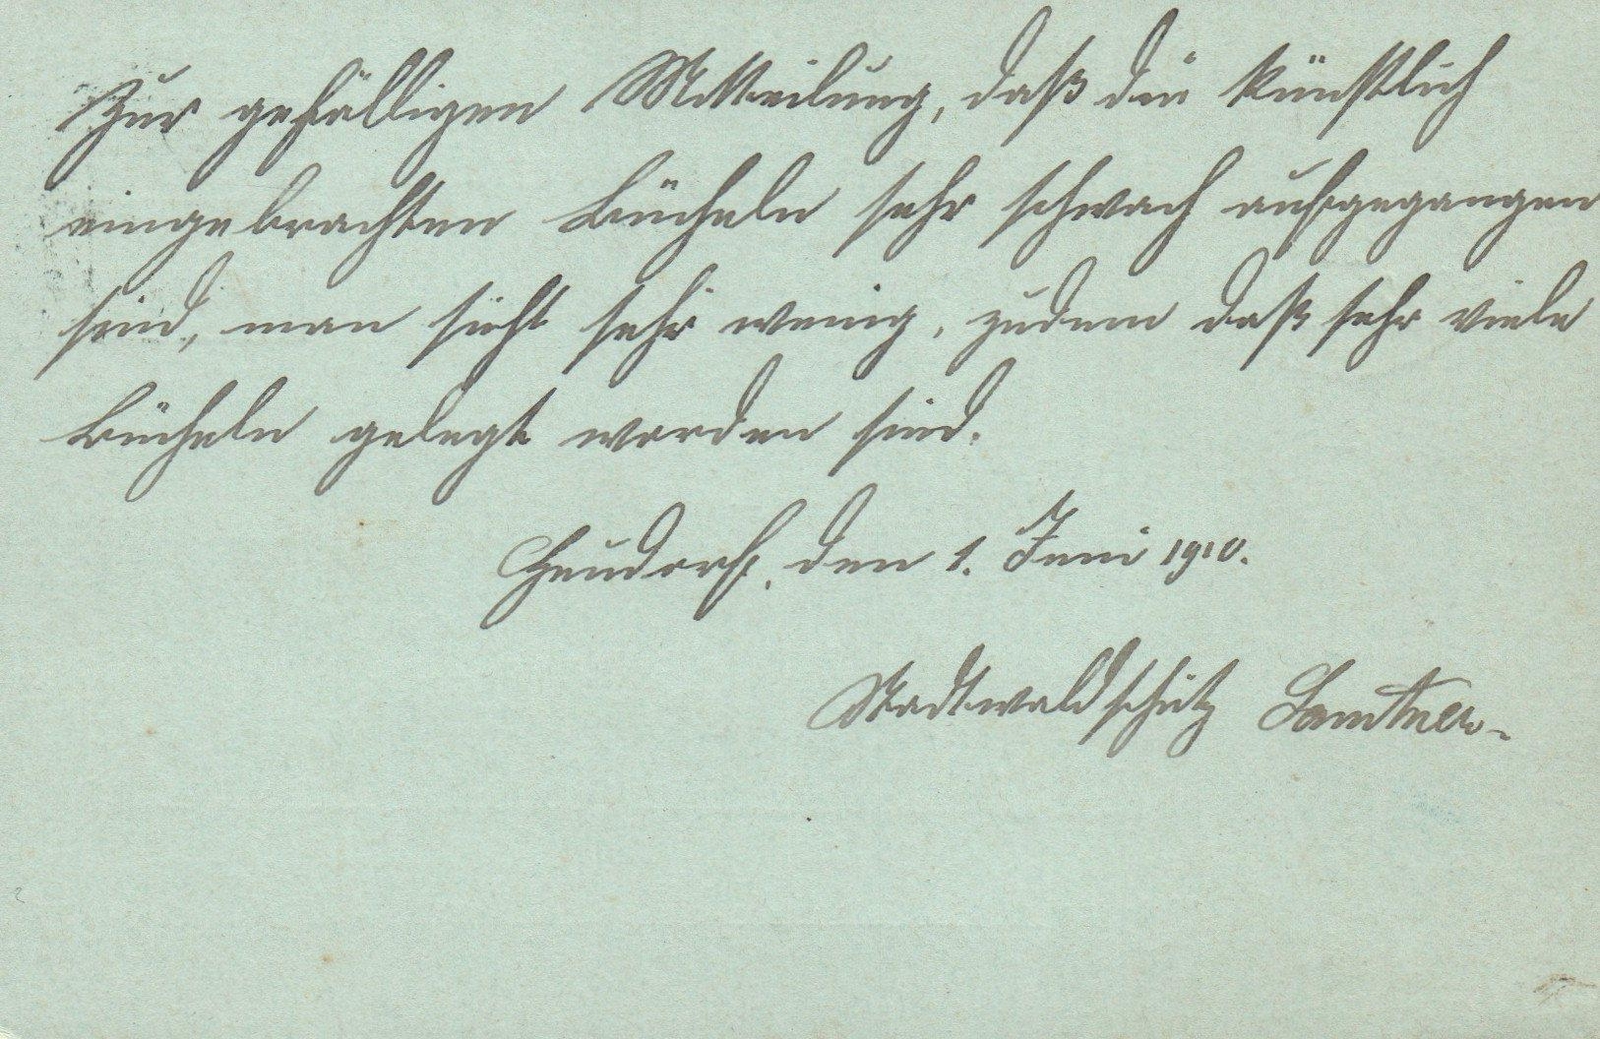 Zur gefälligen Mitteilung, daß die künstlich
eingebrachten Bücheln sehr schwach aufgegangen
sind, man sieht sehr wenig, zudem daß sehr viele
Bücheln gelegt worden sind.
den 1. Juni 1910.
Stadtwaldschütz